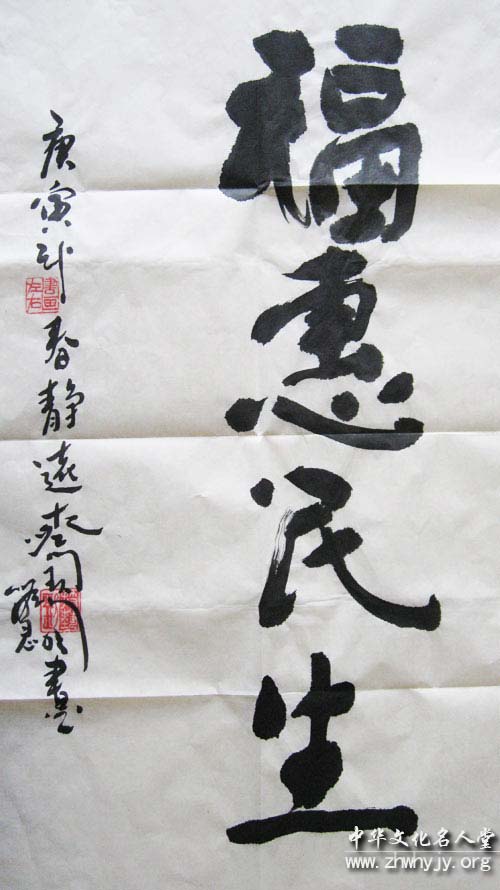 福惠民生
庚寅年春静远
书画
左右
中华文化名人堂
www.zhwhyjy.org